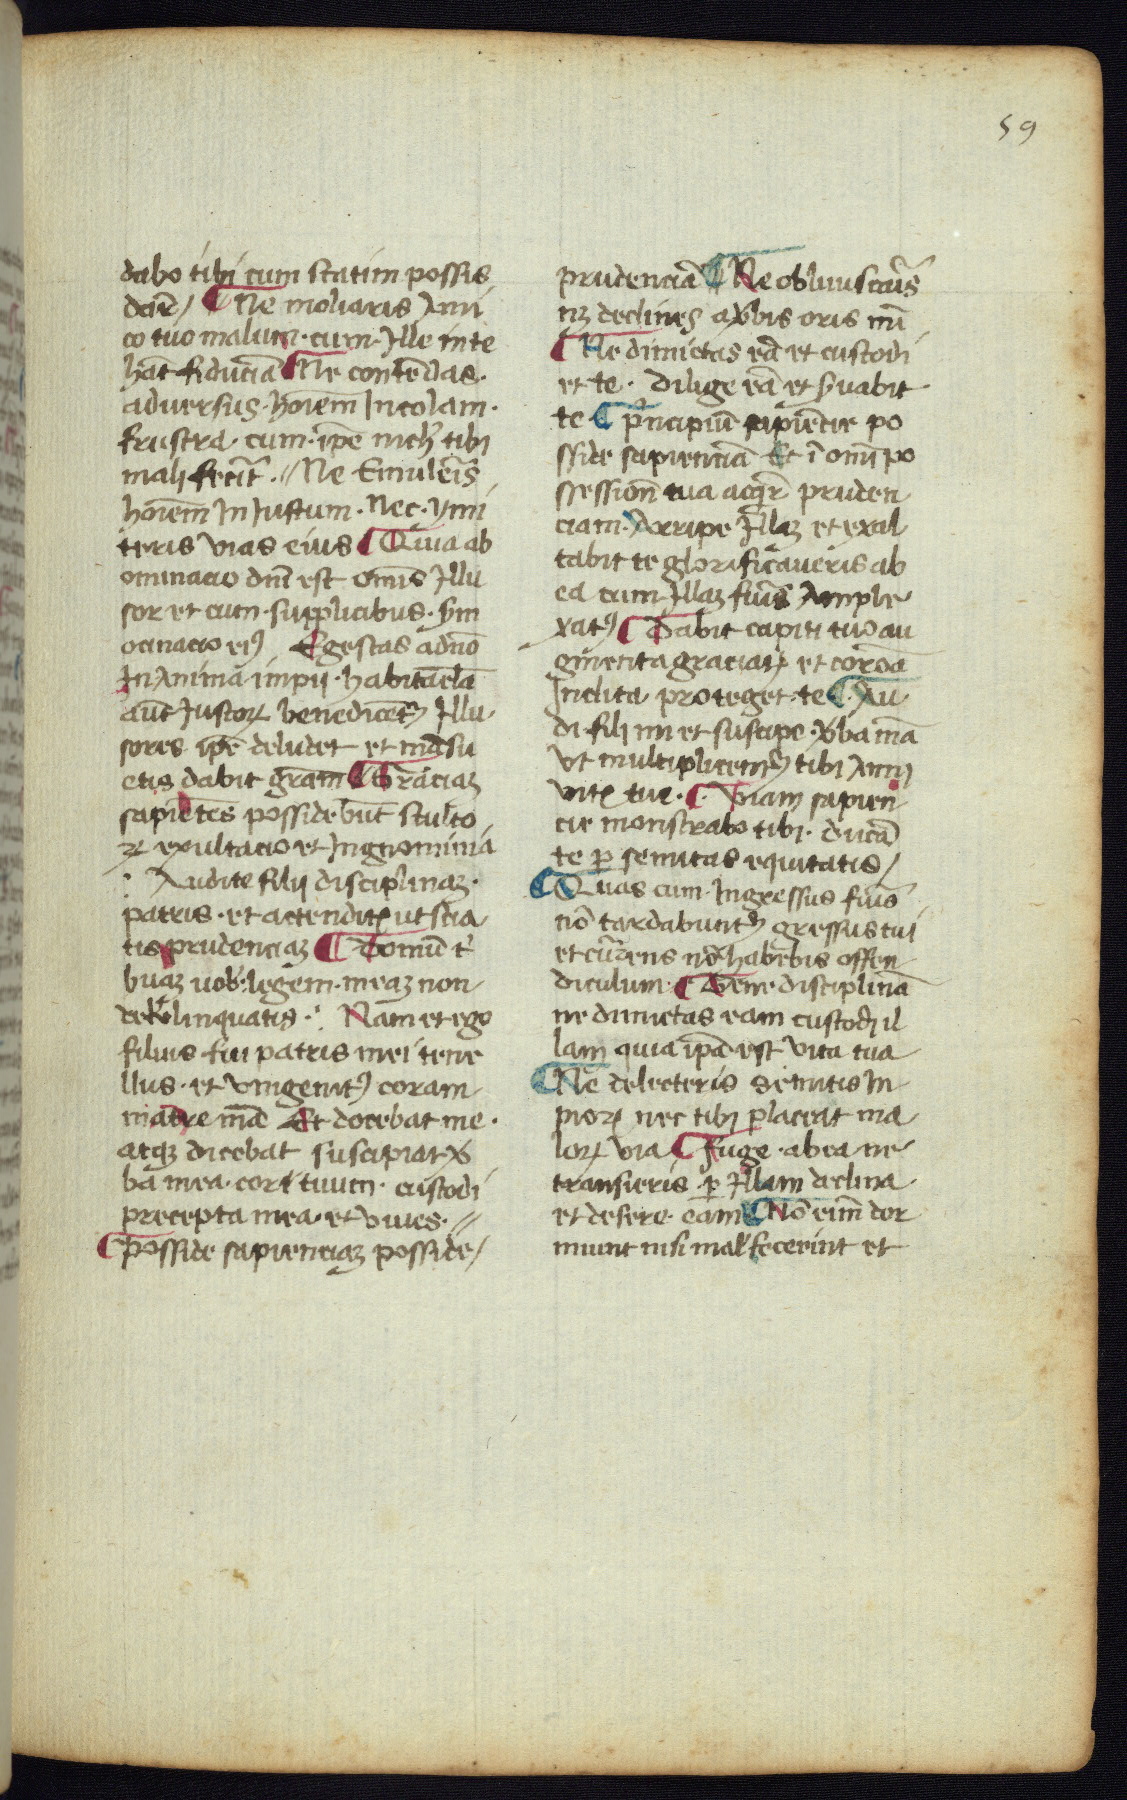 59
dabo tibi cum statim possis
dar̄e / ¶ Ne moliaris Ami
co tuo malum · cum · Ille in te
hāt fiduciā ¶ Ne contēdas ·
adversus · hoīem Incolam ·
frustra · cum · ip̄e nich̓ tibi
mali fecīt · // Ne Emulēis
hoīem In Iustum · Nec · ymi
teris vias eius ¶ Quia ab
ominacio dn̄i est om̄is Illu
sor et cum · supplicibus · sym
ocinacio eiꝰ Egestas a dn̄o
In Anima impij · habitacl̄a
aūt Iustoꝝ benedicetᷣ Illu
sores ip̄e deludet et māsu
etis dabit gr̄am ¶ Graciaꝫ
sapiētes possidebūt stulto
ꝝ exultacio et Ingnominia
: Audite filij disciplinaꝫ ·
patris · et attendite ut scia
tis prudenciaꝫ ¶ Domū t̓
buaꝫ uob̓ · legem · meaꝫ non
derelinquatis · : Nam et ego
filius fui patris mei tene
llus · et vnigenitꝰ coram
matre mā Et docebat me ·
atqꝫ dicebat suscipiat v̓
ba mea · cor tuum · custodi
precepta mea · et viues · //
¶ Posside sapienciaꝫ posside /
prudenciā ¶ Ne obliuiscar̄s
nꝫ declines a v̓bis oris mī
¶ Ne dimictas eā et custodi
et te · dilige eā et s̓uabit
te ¶ P̓ncipiū sapiēcie po
sside sapienciā Et ī om̄i po
ssession̄ tua acq̓r̄e pruden
ciam · Arripe Illaꝫ et exal
tabit te glorificaueris ab
ea cum Illaꝫ fuīs Ample
xatꝰ ¶ Dabit capiti tuo au
gmenta graciaꝝ et corōa
Inclita proteget · te ¶ · Au
di · fili mi et suscipe · v̓ba mā
vt multiplicentᷣ tibi Annj
vite tue · ¶ · Viam sapien
cie monstrabo tibi · ducā
te ꝑ semitas equitatis /
¶ Quas cum · Ingressus fuīs
nō tardabuntᷣ gressus tui
et cūrens nō habebis offen
diculum · ¶ Tene disciplinā
ne dimictas eam custodi il
lam quia ip̄a est vita tua
¶ Ne delecteris semitis In
pioꝝ nec tibi placeat ma
loꝝ via ¶ Fuge · ab ea ne
transieris ꝑ Illam declina
et desere · eam ¶ Nō eīm dor
miunt nisi mal̓ fecerint et